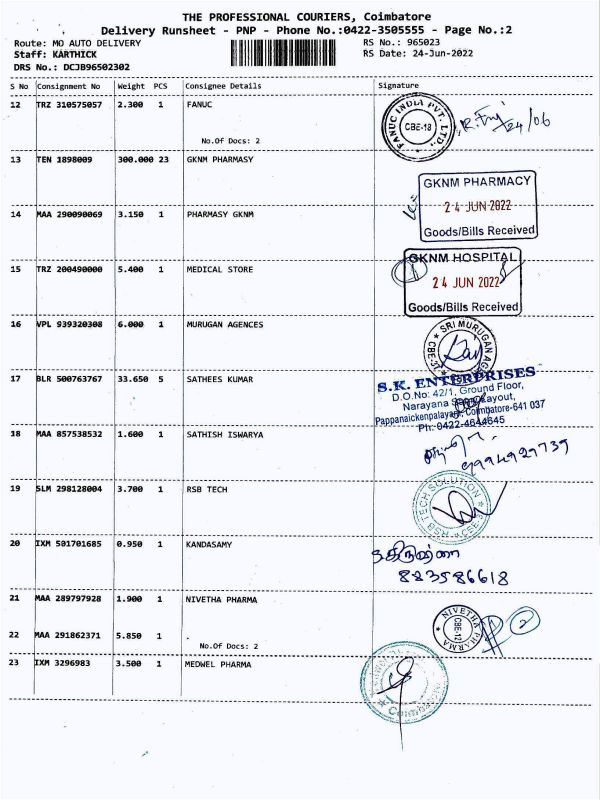 THE PROFESSIONAL COURIERS, Coimbatore
Delivery Runsheet - PNP - Phone No.:0422-3505555 - Page No.:2
Route: MO AUTO DELIVERY RS No.: 965023
Staff: KARTHICK RS Date: 24-Jun-2022
DRS No.: DCJB96502302
S No Consignment No Weight PCS Consignee Details Signature
12 TRZ 310575057 2.300 1 FANUC
FANUC INDIA PVT. LTD.,
CBE-18
24/06
No.Of Docs: 2
13 TEN 1898009 300.000 23 GKNM PHARMASY
GKNM PHARMACY
24 JUN 2022
Goods/Bills Received
14 MAA 290090069 3.150 1 PHARMASY GKNM
GKNM HOSPITAL
24 JUN 2022
Goods/Bills Received
15 TRZ 200490000 5.400 1 MEDICAL STORE
16 VPL 939320308 6.000 1 MURUGAN AGENCES
SRI MURUGAN
17 BLR 500763767 33.650 5 SATHEES KUMAR
S.K. ENTERPRISES
D.O.No: 42/1, Ground Floor,
Narayana Layout,
Pappanaickenpalayam, Coimbatore-641 037
Ph: 0422-4644645
18 MAA 857538532 1.600 1 SATHISH ISWARYA
9994929739
19 SLM 298128004 3.700 1 RSB TECH
RSB TECH SOLUTION
20 IXM 501701685 0.950 1 KANDASAMY
883586618
21 MAA 289797928 1.900 1 NIVETHA PHARMA
NIVETHA PHARMA
CBE-12
2
22 MAA 291862371 5.850 1
No.Of Docs: 2
23 IXM 3296983 3.500 1 MEDWEL PHARMA